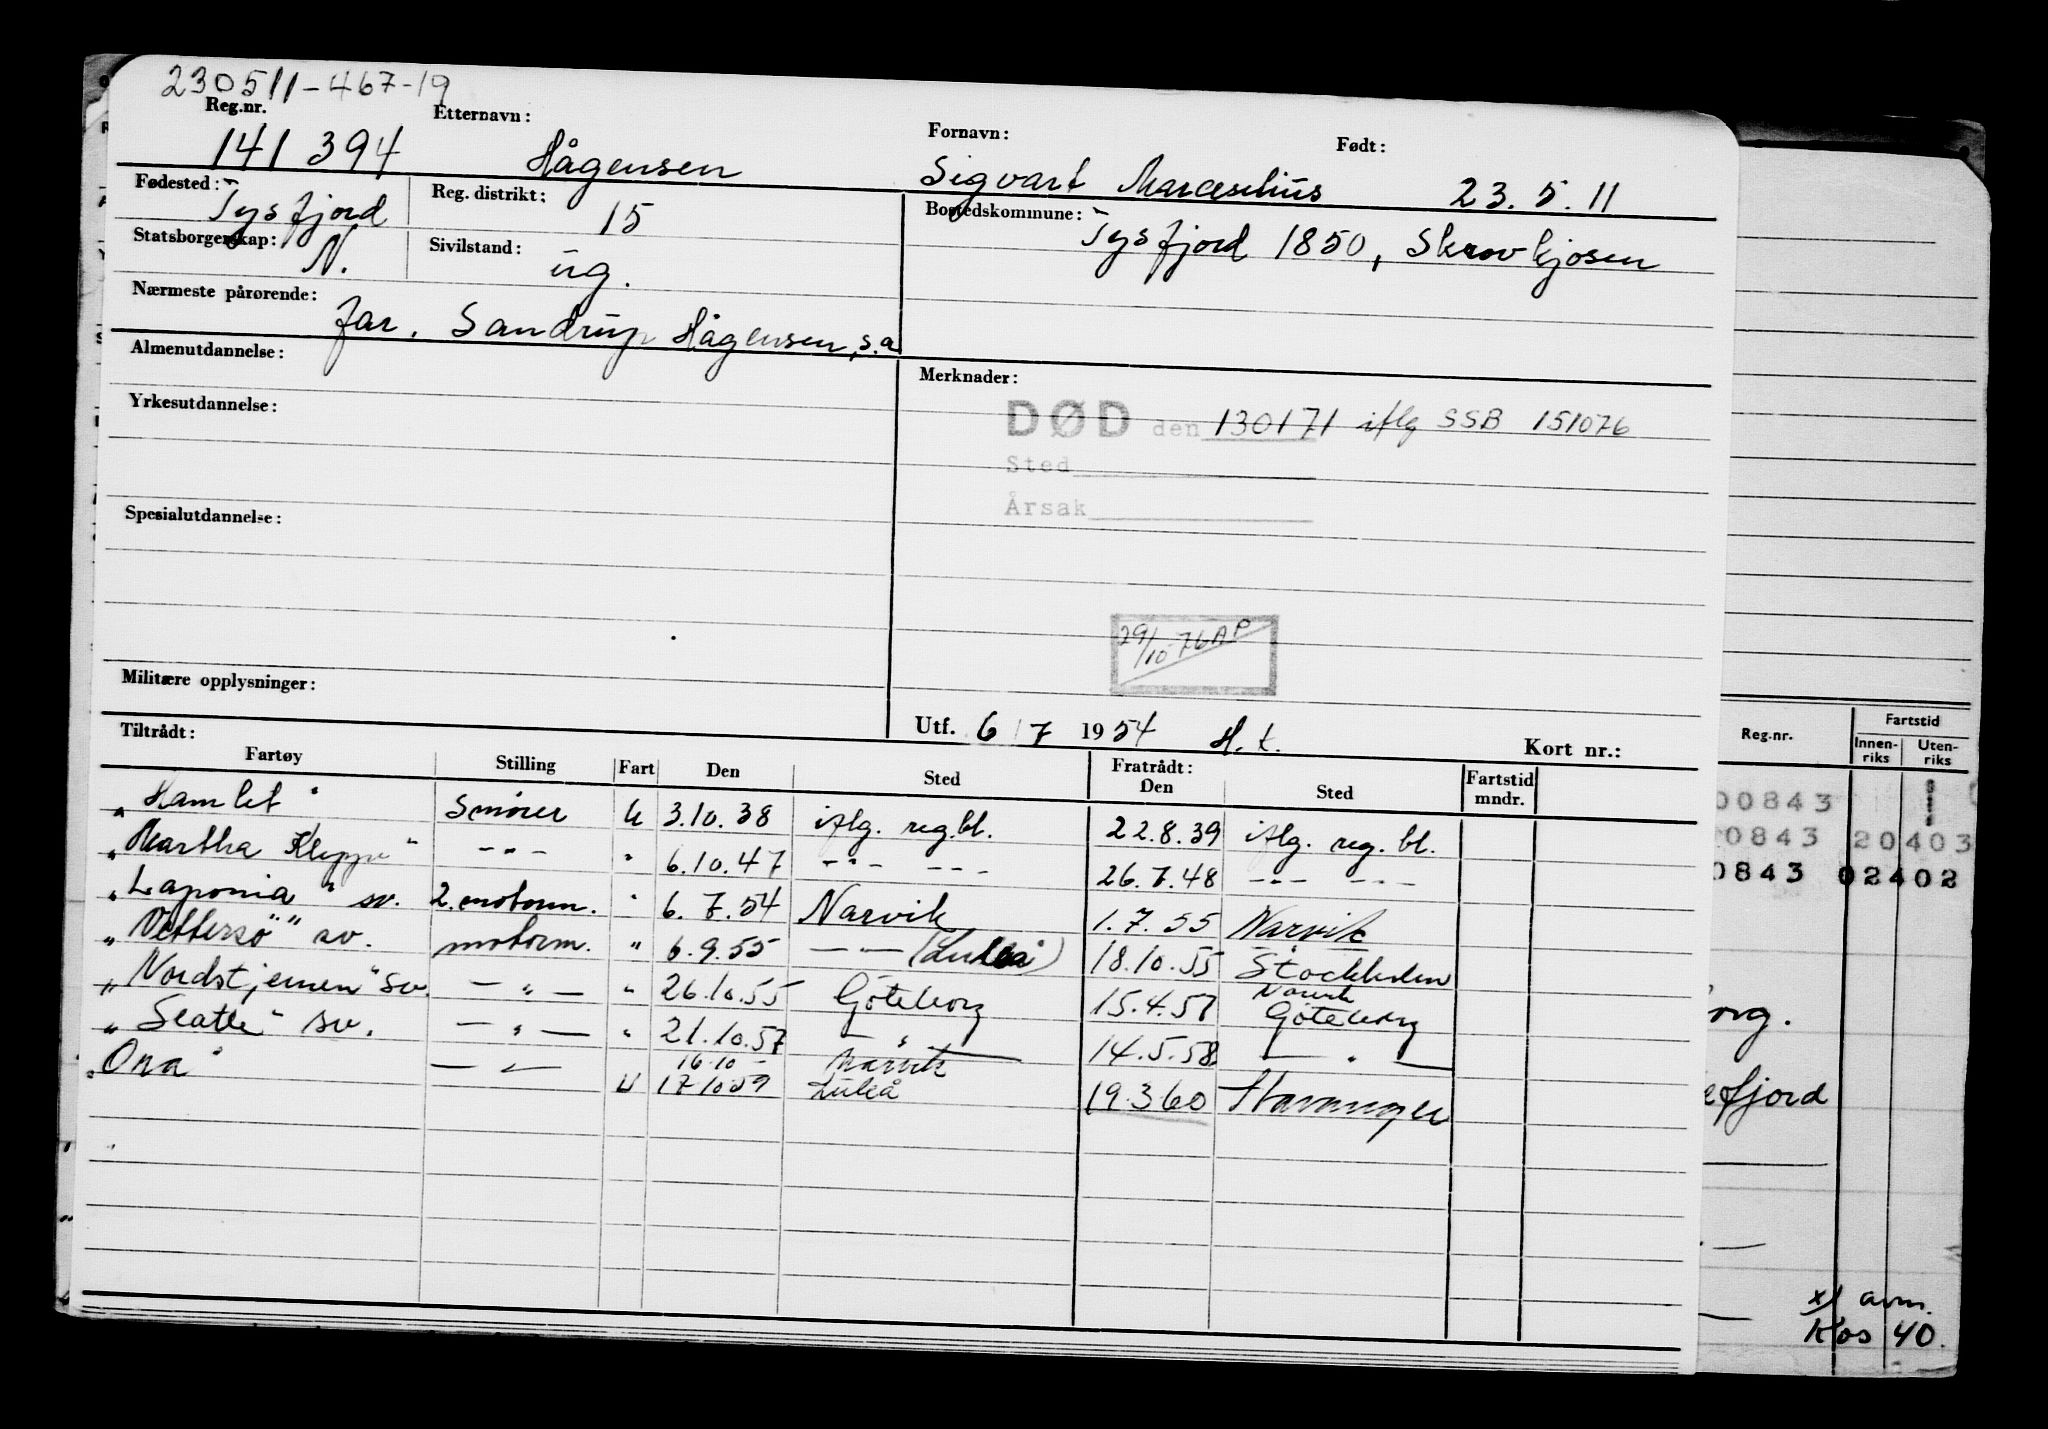 230511-467-19
Reg.nr. Etternavn: Fornavn: Født:
141 394 Hågensen Sigvart Marcselius 23.5.11
Fødested: Tysfjord Reg. distrikt: 15 Bostedskommune: Tysfjord 1850, Skrovkjosen
Statsborgerskap: N. Sivilstand: ug.
Nærmeste pårørende: far. Sandrup Hågensen, s.a
Almenutdannelse: Merknader:
Yrkesutdannelse: DØD den 130171 iflg SSB 151076
Sted
Årsak
Spesialutdannelse:
29/10-76 AP
Militære opplysninger:
Utf. 6/7 1954 H.t. Kort nr.:
Tiltrådt: Fratrådt:
Fartøy Stilling Fart Den Sted Den Sted Fartstid mndr.
"Hamlet" Smører U 3.10.38 iflg. reg.bl. 22.8.39 iflg. reg. bl.
"Martha Kleppe" -"- " 6.10.47 -"- -"- 26.7.48 -"- -"-
"Laponia" sv. 2.motorm. " 6.7.54 Narvik 1.7.55 Narvik
"Vettersö" sv. motorm. " 6.9.55 -"- (Luleå) 18.10.55 Stockholm
"Nordstjernen" sv. -"- " 26.10.55 Göteborg 15.4.57 Narvik Göteborg
"Seattle" sv. -"- " 21.10.57 -"- 14.5.58 -"-
16.10 Narvik
"Ona" -"- U 17.10.59 Luleå 19.3.60 Stavanger
Reg.nr. Fartstid
Innen-riks Uten-riks
00843
0843 20403
0843 02402
org.
efjord
x/ avm.
Kos 40.